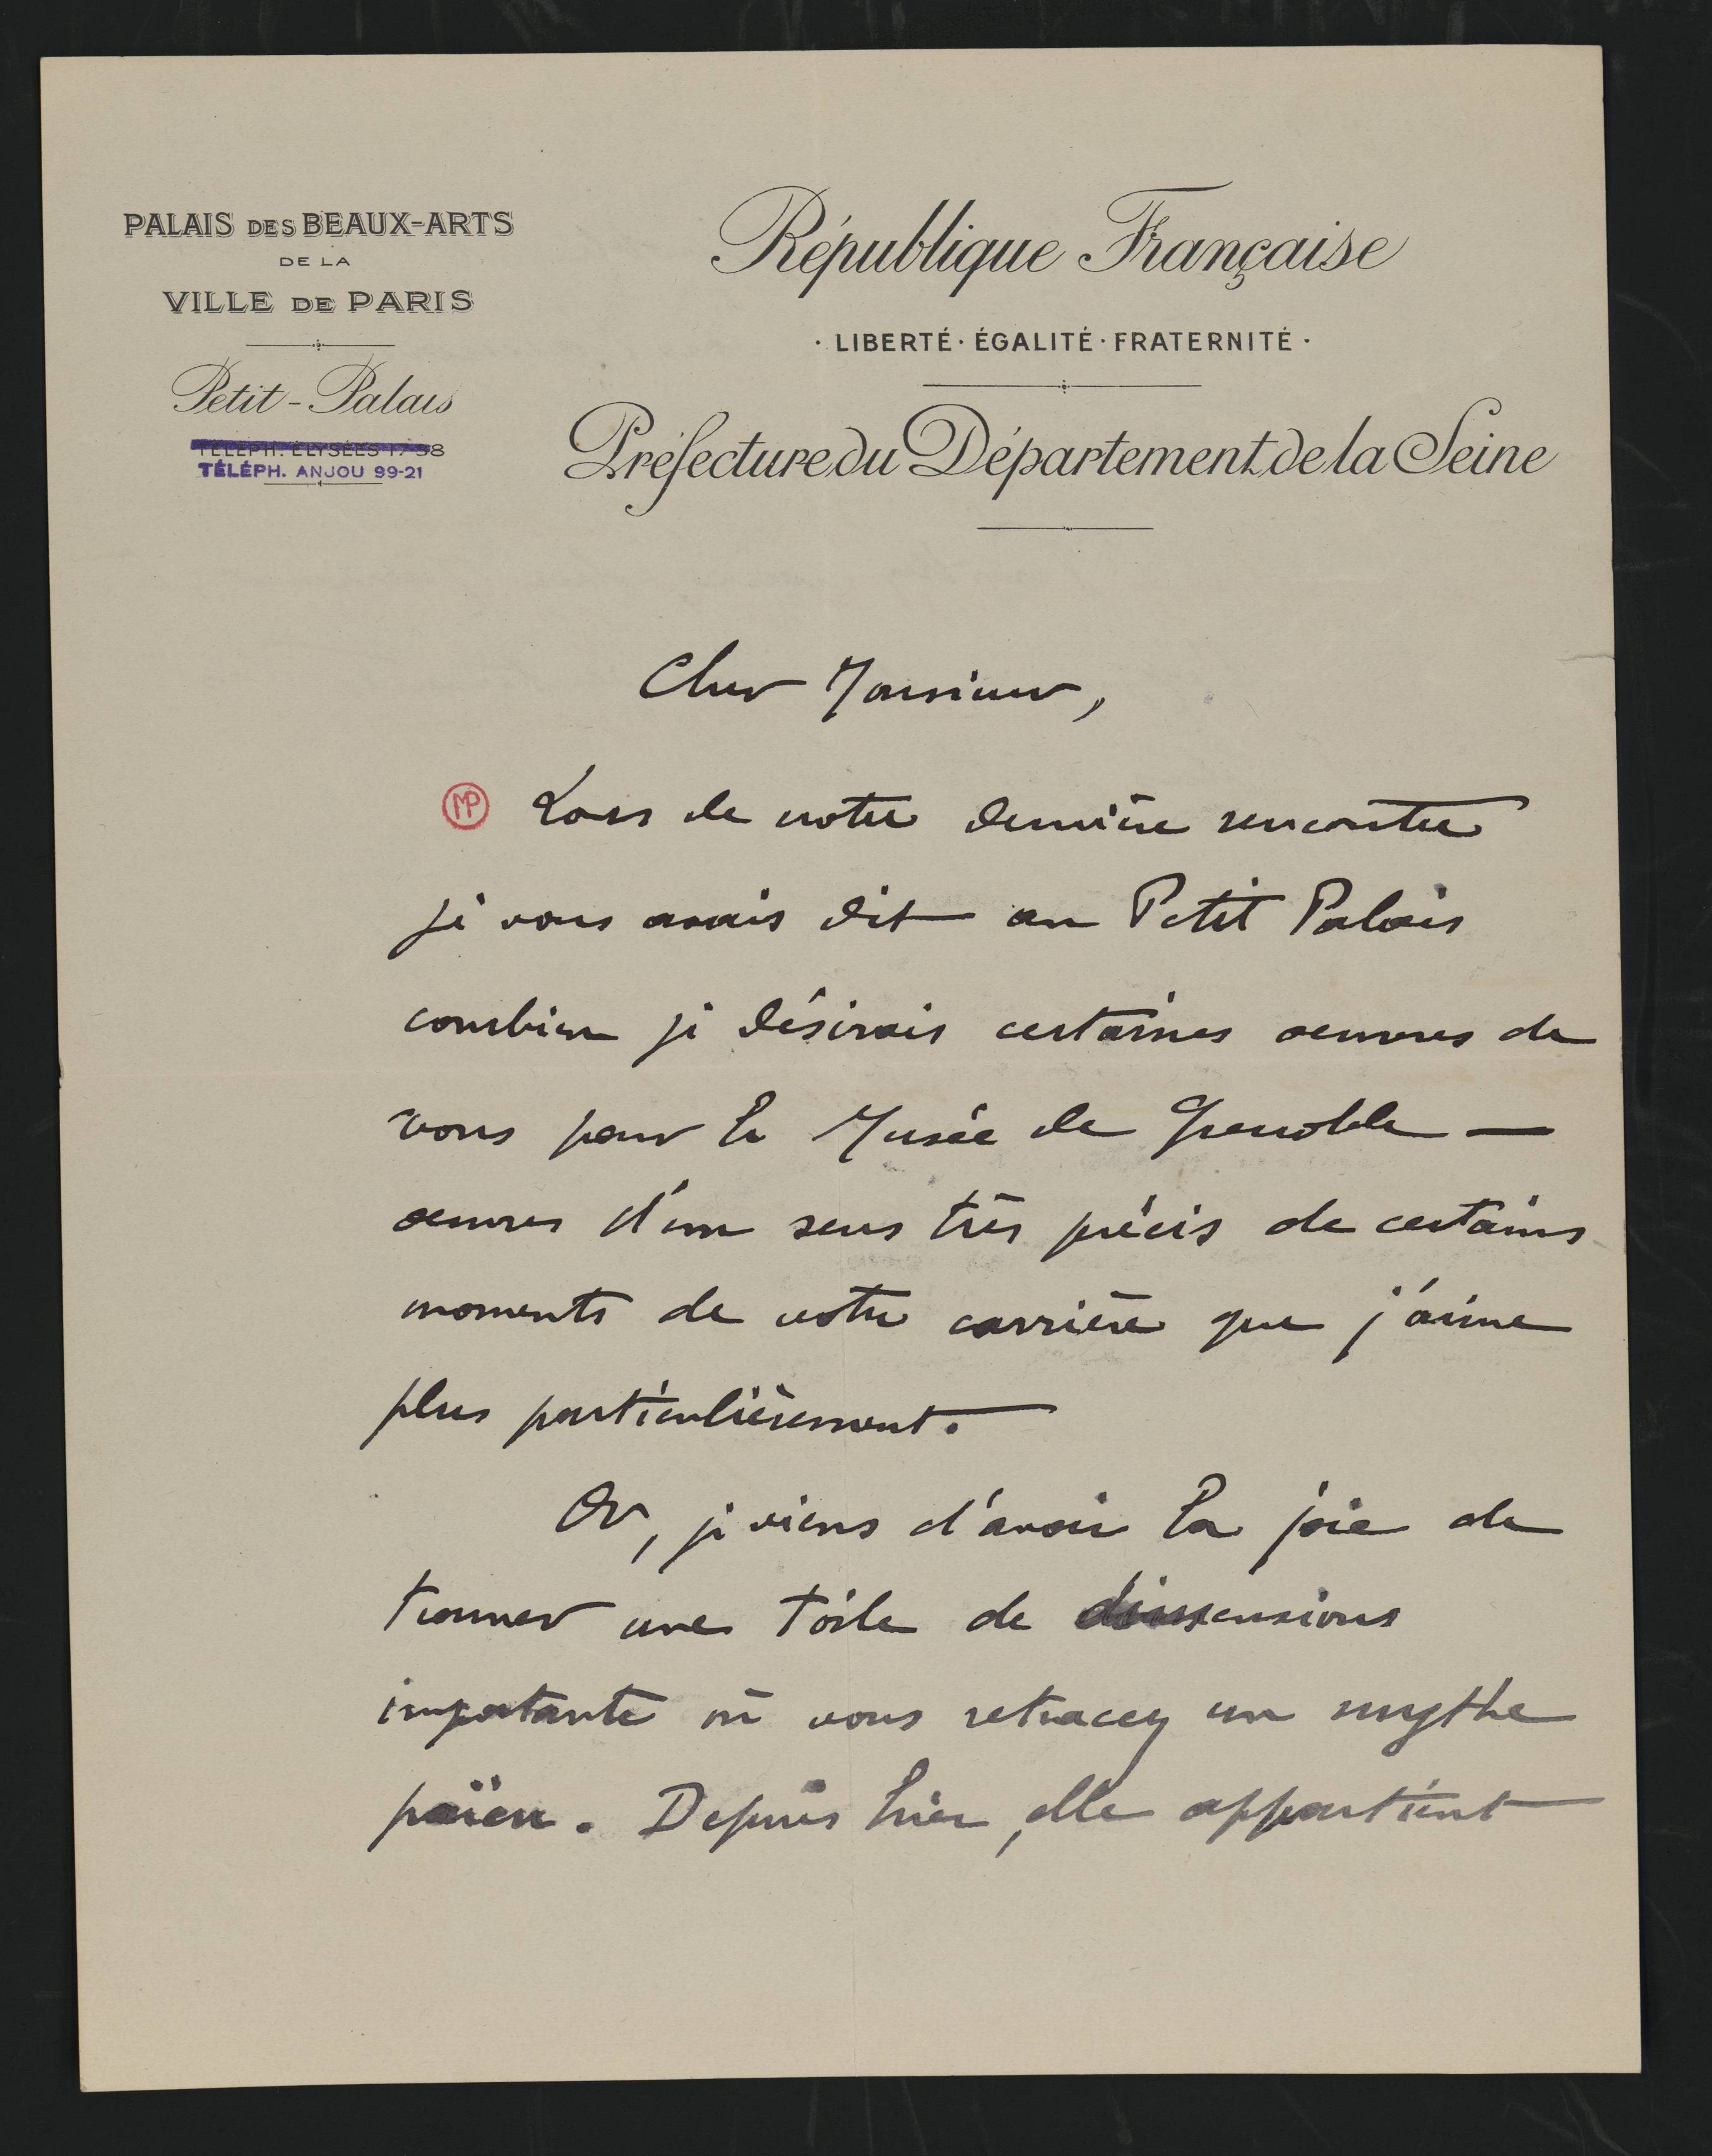 PALAIS DES BEAUX-ARTS
DE LA
VILLE DE PARIS
Petit-Palais
TÉLÉPH. ÉLYSÉES 17-38
TÉLÉPH. ANJOU 99-21
République Française
· LIBERTÉ · ÉGALITÉ · FRATERNITÉ ·
Préfecture du Département de la Seine
Cher Monsieur,
MP
Lors de notre dernière rencontre
je vous avais dit au Petit Palais
combien je désirais certaines oeuvres de
vous pour le Musée de Grenoble —
oeuvres d'un sens très précis de certains
moments de votre carrière que j'aime
plus particulièrement.
Or, je viens d'avoir la joie de
trouver une toile de dimensions
importante où vous retracez un mythe
païen. Depuis hier, elle appartient